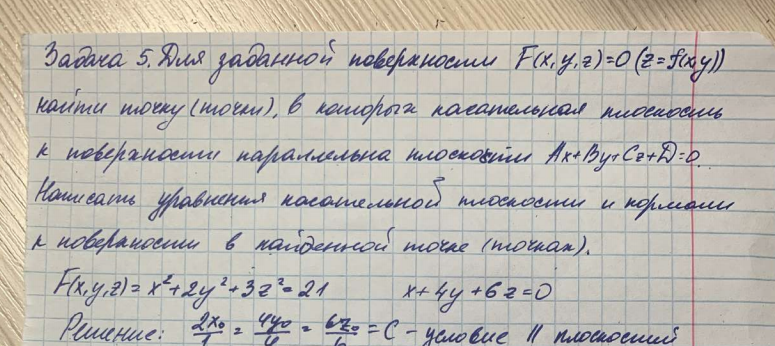 Задача 5. Для заданной поверхности F(x,y,z)=0 (z=f(x,y))
найти точку (точки), в которых касательная плоскость
к поверхности параллельна плоскости Ax+By+Cz+D=0.
Написать уравнения касательной плоскости и нормали
к поверхности в найденной точке (точках).
F(x,y,z)=x²+2y²+3z²=21 x+4y+6z=0
Решение: 2x₀/1 = 4y₀/4 = 6z₀/6 = C - условие || плоскостей